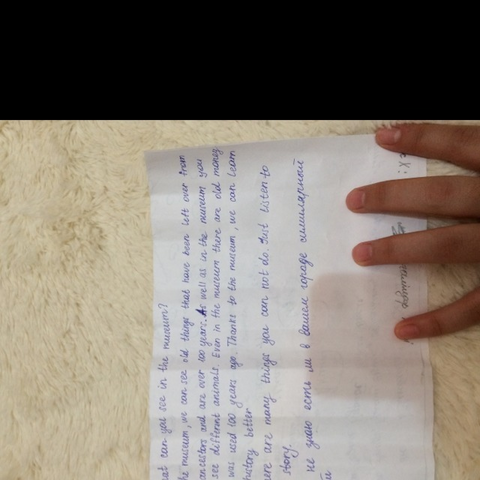 at can you see in the museum?
he museum, we can see old things that have been left over from
ancestors and are over 100 years. As well as in the museum you
see different animals. Even in the museum there are old money
was used 100 years ago. Thanks to the museum, we can learn
history better
ere are many things you can not do. Just listen to
story.
не знаю есть ли в вашем городе
й